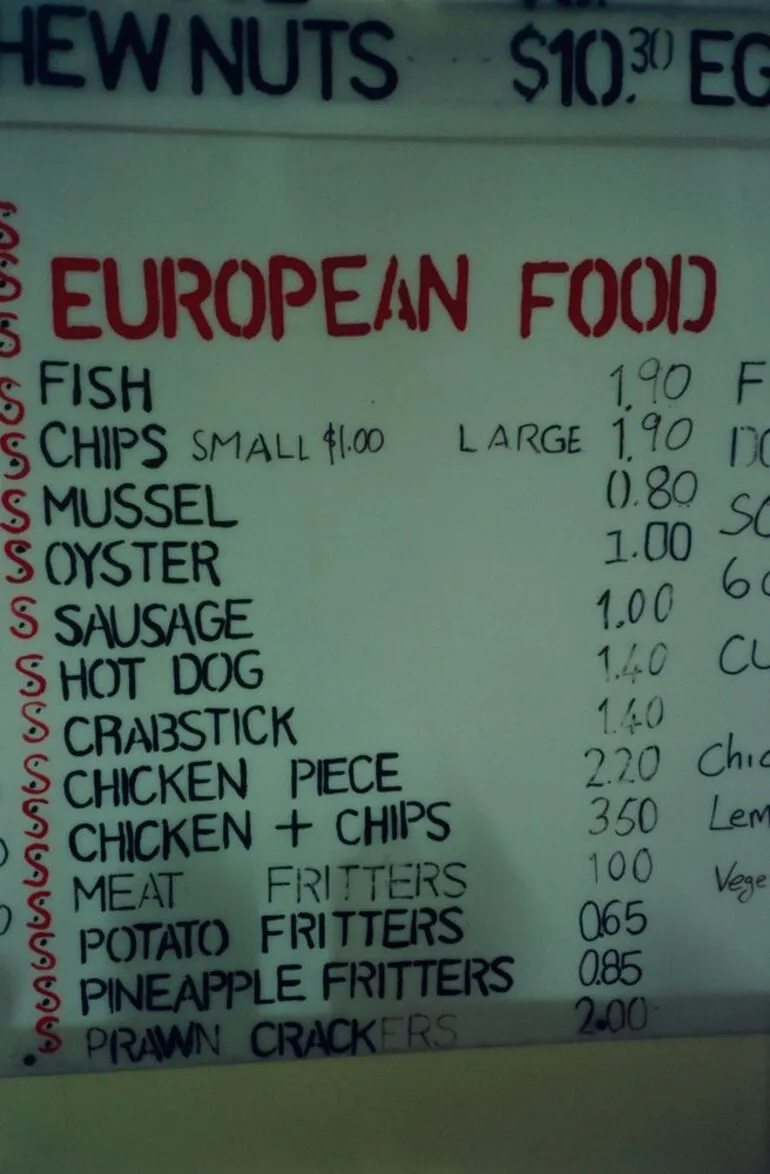 HEW NUTS $10.30 EG
EUROPEAN FOOD
FISH 1.90 F
CHIPS SMALL $1.00 LARGE 1.90
MUSSEL 0.80
OYSTER 1.00
SAUSAGE 1.00
HOT DOG 1.40
CRABSTICK 1.40
CHICKEN PIECE 2.20
CHICKEN + CHIPS 350
MEAT FRITTERS 100
POTATO FRITTERS 0.65
PINEAPPLE FRITTERS 0.85
PRAWN CRACKERS 2.00
SO
60
CU
Chic
Lem
Vege